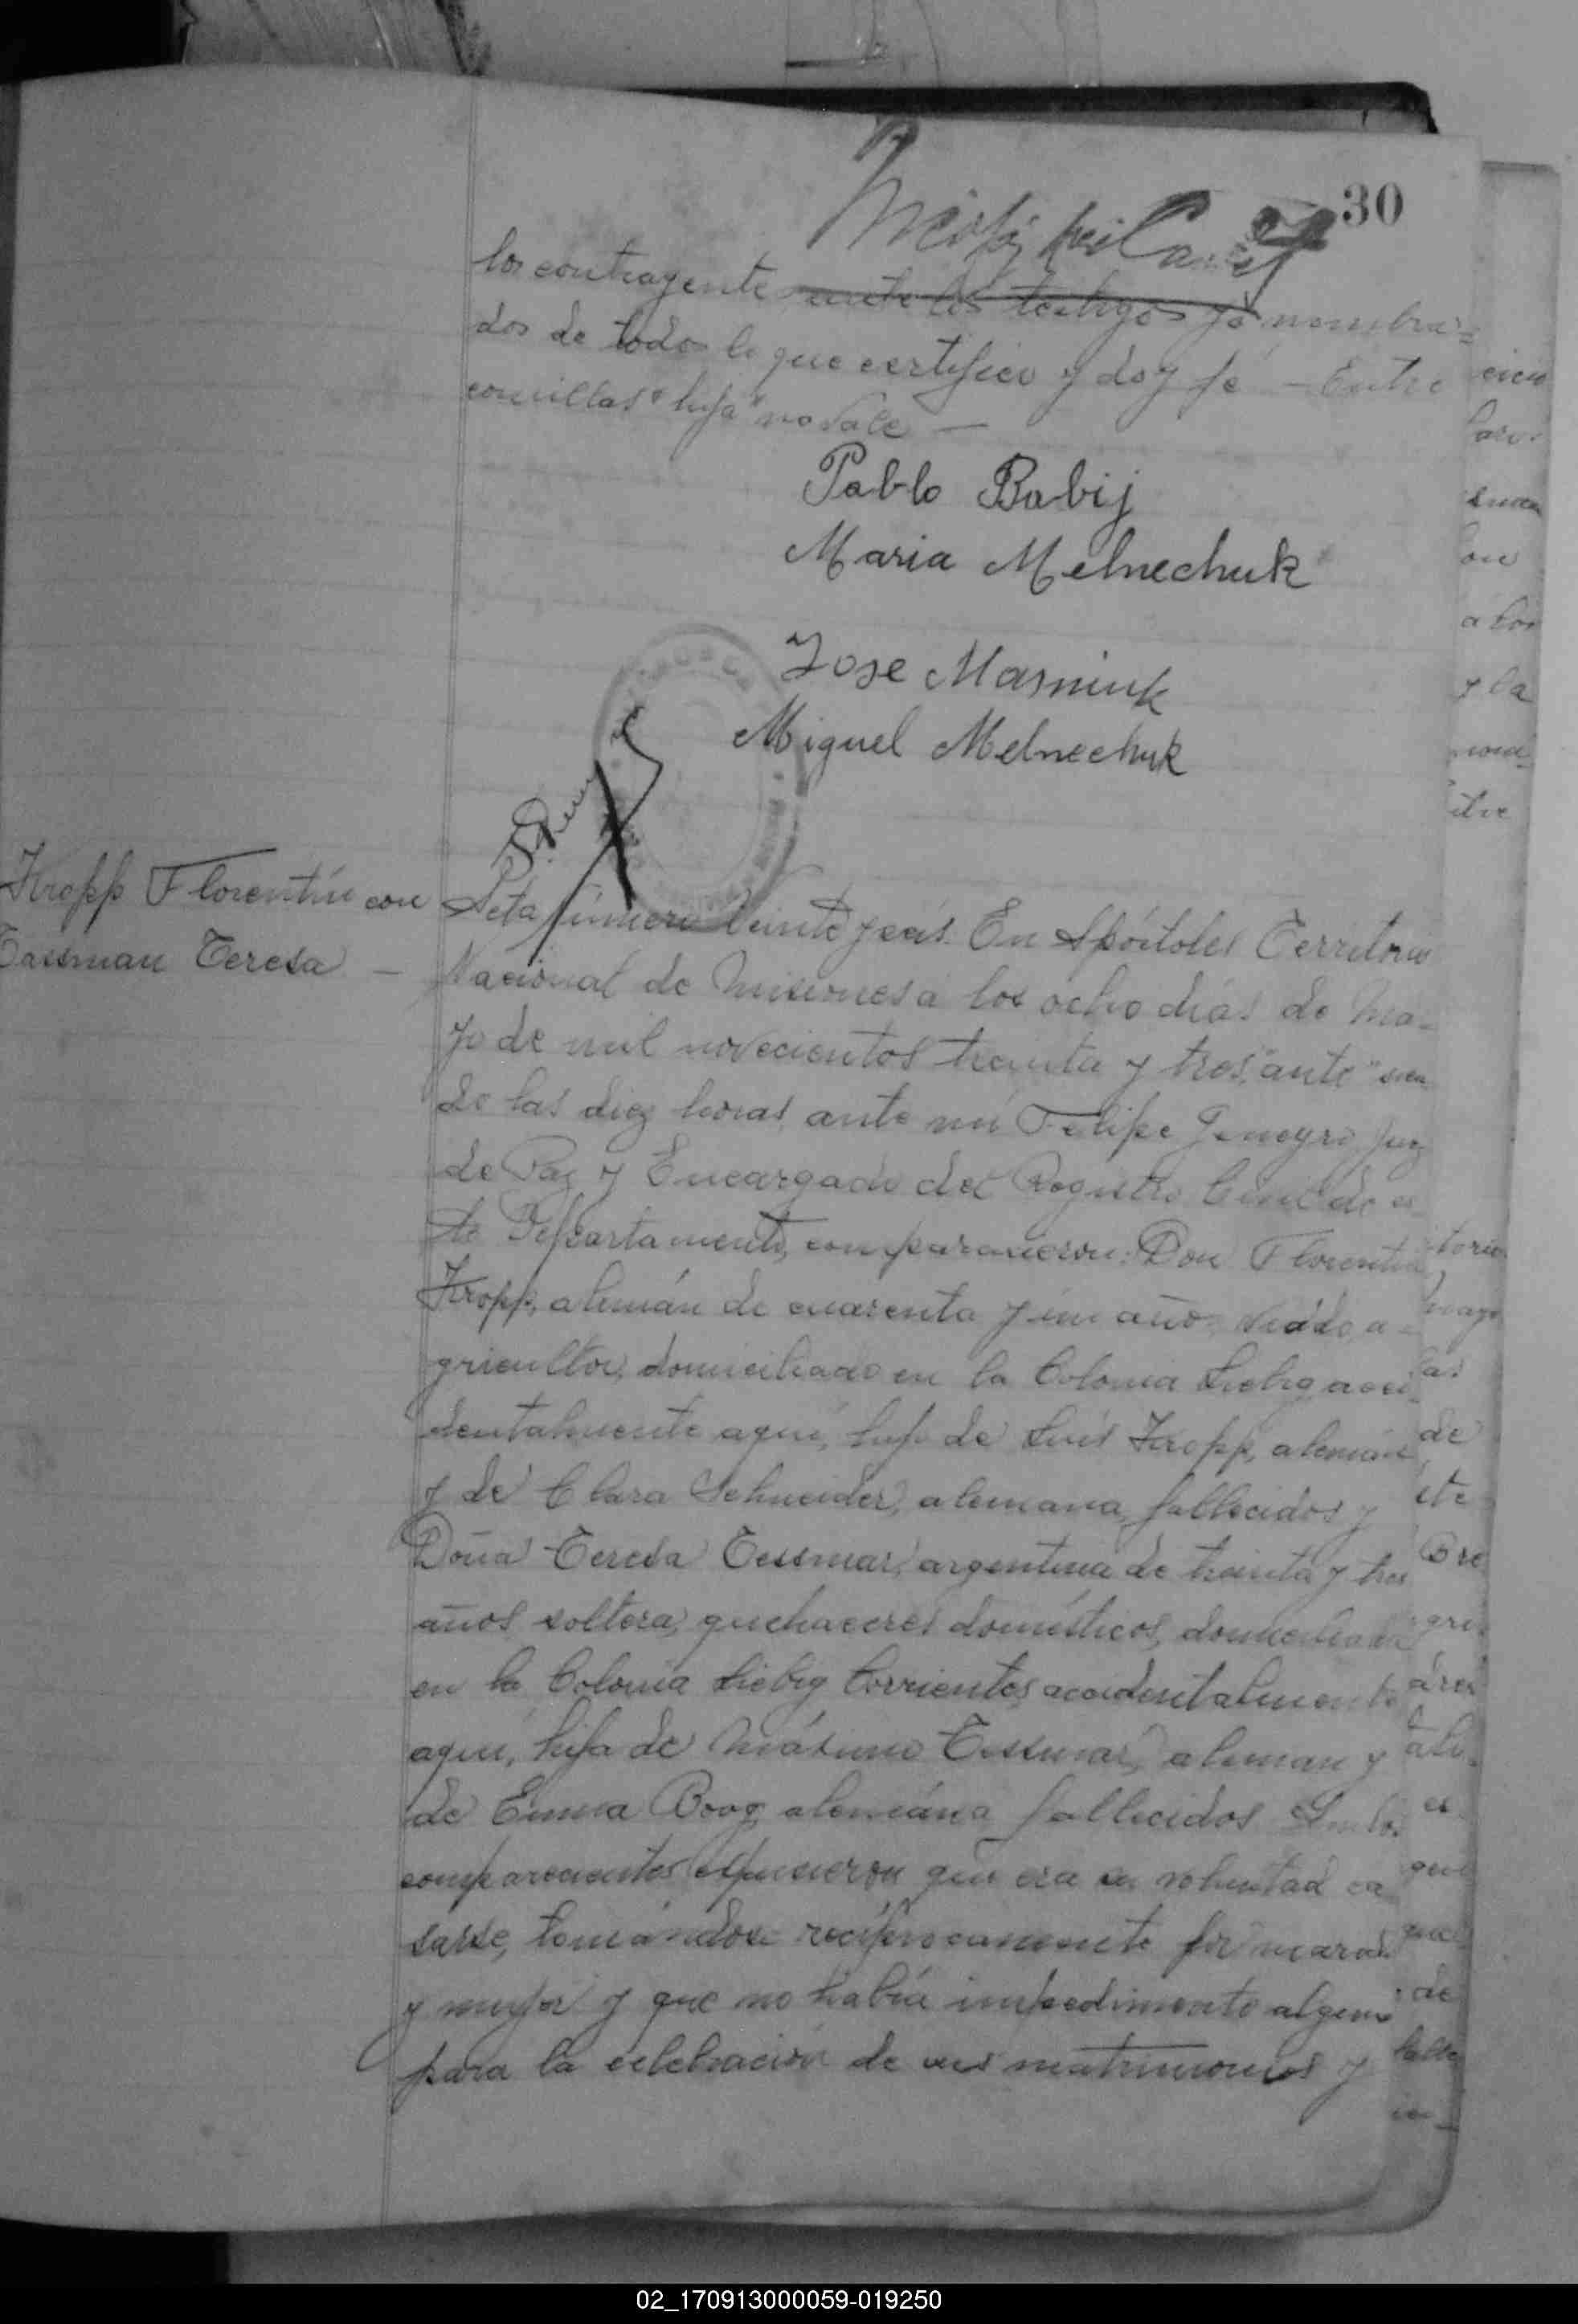 30
los contrayente ante los testigos ya nombra=
dos de todo lo que certifico y doy fé — Entre
comillas "hija" no vale —
Pablo Babij
Maria Melnechuk
Jose Masniuk
Miguel Melnechuk
Kropp Florentín con
Tassman Teresa —
Acta número veinte y seis. En Apóstoles Territorio
Nacional de Misiones a los ocho días de Ma=
yo de mil novecientos treinta y tres, "ante" sien
do las diez horas, ante mí Felipe Juez
de Paz y Encargado del Registro Civil de es
te Departamento, comparecieron: Don Florentin
Kropp, alemán de cuarenta y un año viudo, a=
gricultor, domiciliado en la Colonia Liebig acci
dentalmente aquí, hijo de Luis Kropp, alemán
y de Clara Schneider, alemana, fallecidos y
Doña Teresa Tessmar, argentina de treinta y tres
años soltera, quehaceres domésticos, domiciliada
en la Colonia Liebig Corrientes accidentalmente
aquí, hija de Máximo Tessmar, aleman y
de Emma Boog alemána fallecidos Ambos
comparecientes expusieron que era su voluntad ca
sarse, tomándose recíprocamente por marido
y mujer y que no había impedimento alguno
para la celebración de sus matrimonios y
02_170913000059-019250